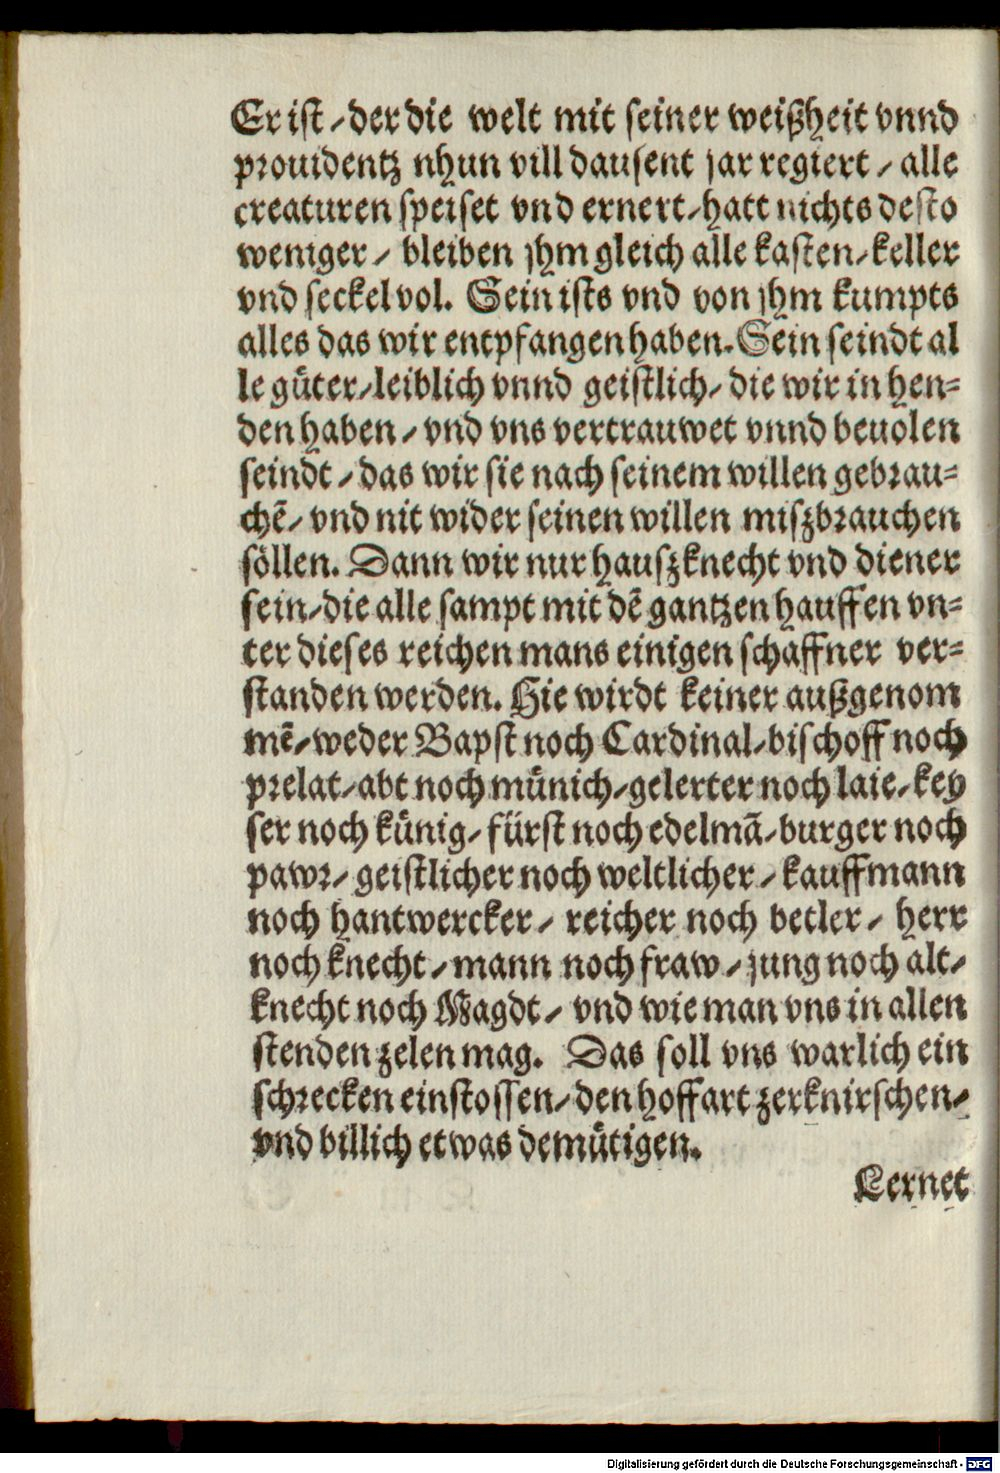 Er ist / der die welt mit seiner weißheit vnnd
prouidentz nhun vill dausent jar regiert / alle
creaturen speiset vnd ernert / hatt nichts desto
weniger / bleiben jhm gleich alle kasten / keller
vnd seckel vol. Sein ists vnd von jhm kumpts
alles das wir entpfangen haben. Sein seindt al
le gůter / leiblich vnnd geistlich / die wir in hen=
den haben / vnd vns vertrauwet vnnd beuolen
seindt / das wir sie nach seinem willen gebrau=
chē / vnd nit wider seinen willen miszbrauchen
söllen. Dann wir nur hauszknecht vnd diener
sein / die alle sampt mit dē gantzen hauffen vn=
ter dieses reichen mans einigen schaffner ver=
standen werden. Hie wirdt keiner außgenom
mē / weder Bapst noch Cardinal / bischoff noch
prelat / abt noch münich / gelerter noch laie / key
ser noch künig / fürst noch edelmā / burger noch
pawr / geistlicher noch weltlicher / kauffmann
noch hantwercker / reicher noch betler / herr
noch knecht / mann noch fraw / jung noch alt /
knecht noch Magdt / vnd wie man vns in allen
stenden zelen mag. Das soll vns warlich ein
schrecken einstossen / den hoffart zerknirschen /
vnd billich etwas demütigen.
Lernet
Digitalisierung gefördert durch die Deutsche Forschungsgemeinschaft - DFG